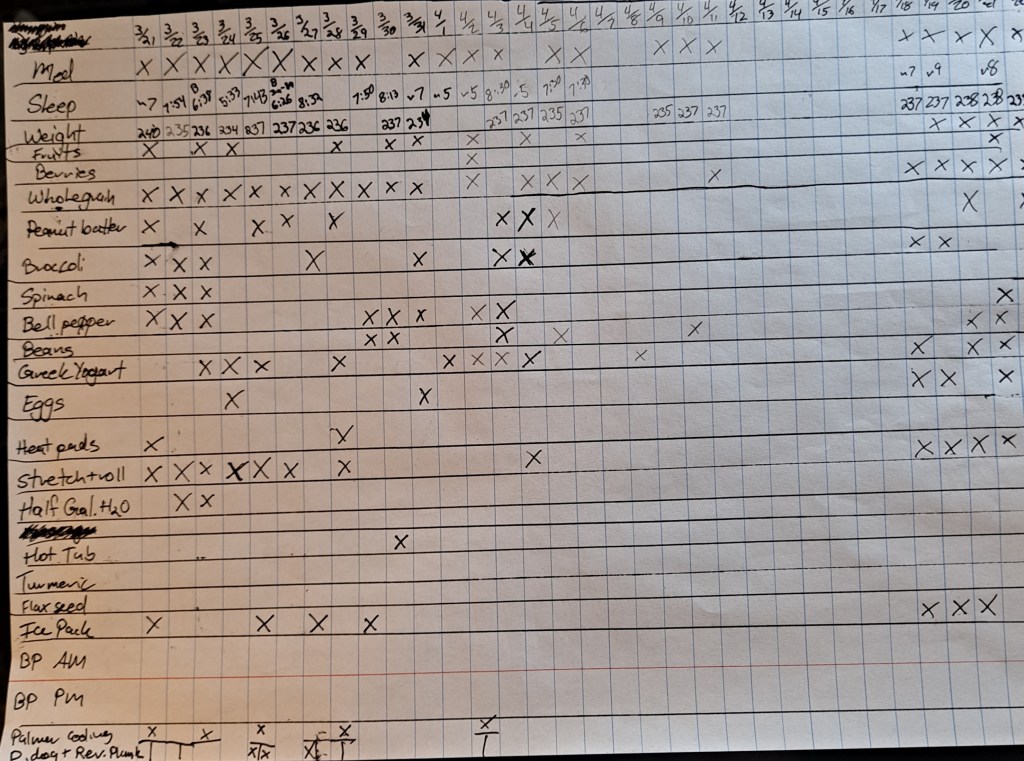 3/21 3/22 3/23 3/24 3/25 3/26 3/27 3/28 3/29 3/30 3/31 4/1 4/2 4/3 4/4 4/5 4/6 4/7 4/8 4/9 4/10 4/11 4/12 4/13 4/14 4/15 4/16 4/17 4/18 4/19 4/20
Med X X X X X X X X X X X X X X X X X X X X X X X X
Sleep ~7 7:54 6:38 5:33 7:43 6:26 8:32 7:50 8:13 ~7 ~5 ~5 8:30 ~5 7:30 7:30 ~7 ~9 ~8
Weight 240 235 236 234 237 237 236 236 237 234 237 237 235 237 235 237 237 237 237 238 238
Fruits X X X X X X X X X X X X X
Berries X X
Wholegrain X X X X X X X X X X X X X X X X X X X X
Peanut butter X X X X X X X X X
Broccoli X X X X X X X X X
Spinach X X X X
Bell pepper X X X X X X X X X X
Beans X X X X X X X X
Greek Yogart X X X X X X X X X X X X
Eggs X X
Heat pads X X X X X X
Stretch+roll X X X X X X X X
Half Gal. H2O X X
Hot Tub X
Turmeric
Flax seed X X X
Ice Pack X X X X
BP AM
BP PM
Palmer cooling X X X X X
D.dog + Rev.Plank X X X